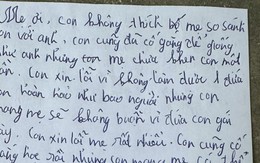 Mẹ ơi, con không thích bố mẹ so sánh
con với anh. con cũng đã cố gắng để giống
như anh nhưng bố mẹ chưa nhìn con một
lần. Con xin lỗi vì không làm được 1 đứa
con hoàn hảo như bao người nhưng con
mong mẹ sẽ không buồn vì đứa con gái
này. Con xin lỗi mẹ rất nhiều. Con cũng cố
gắng học rồi nhưng con mong mẹ